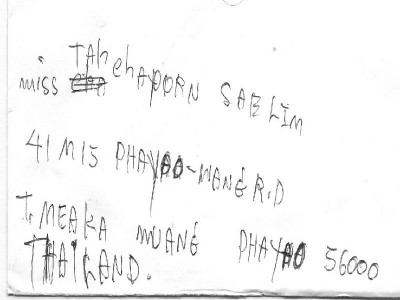 miss TAhchAPORN SAELIM
41 M15 PHAYAO-WANG R.D
T. MEAKA MUANG PHAYAO 56000
THAILAND.